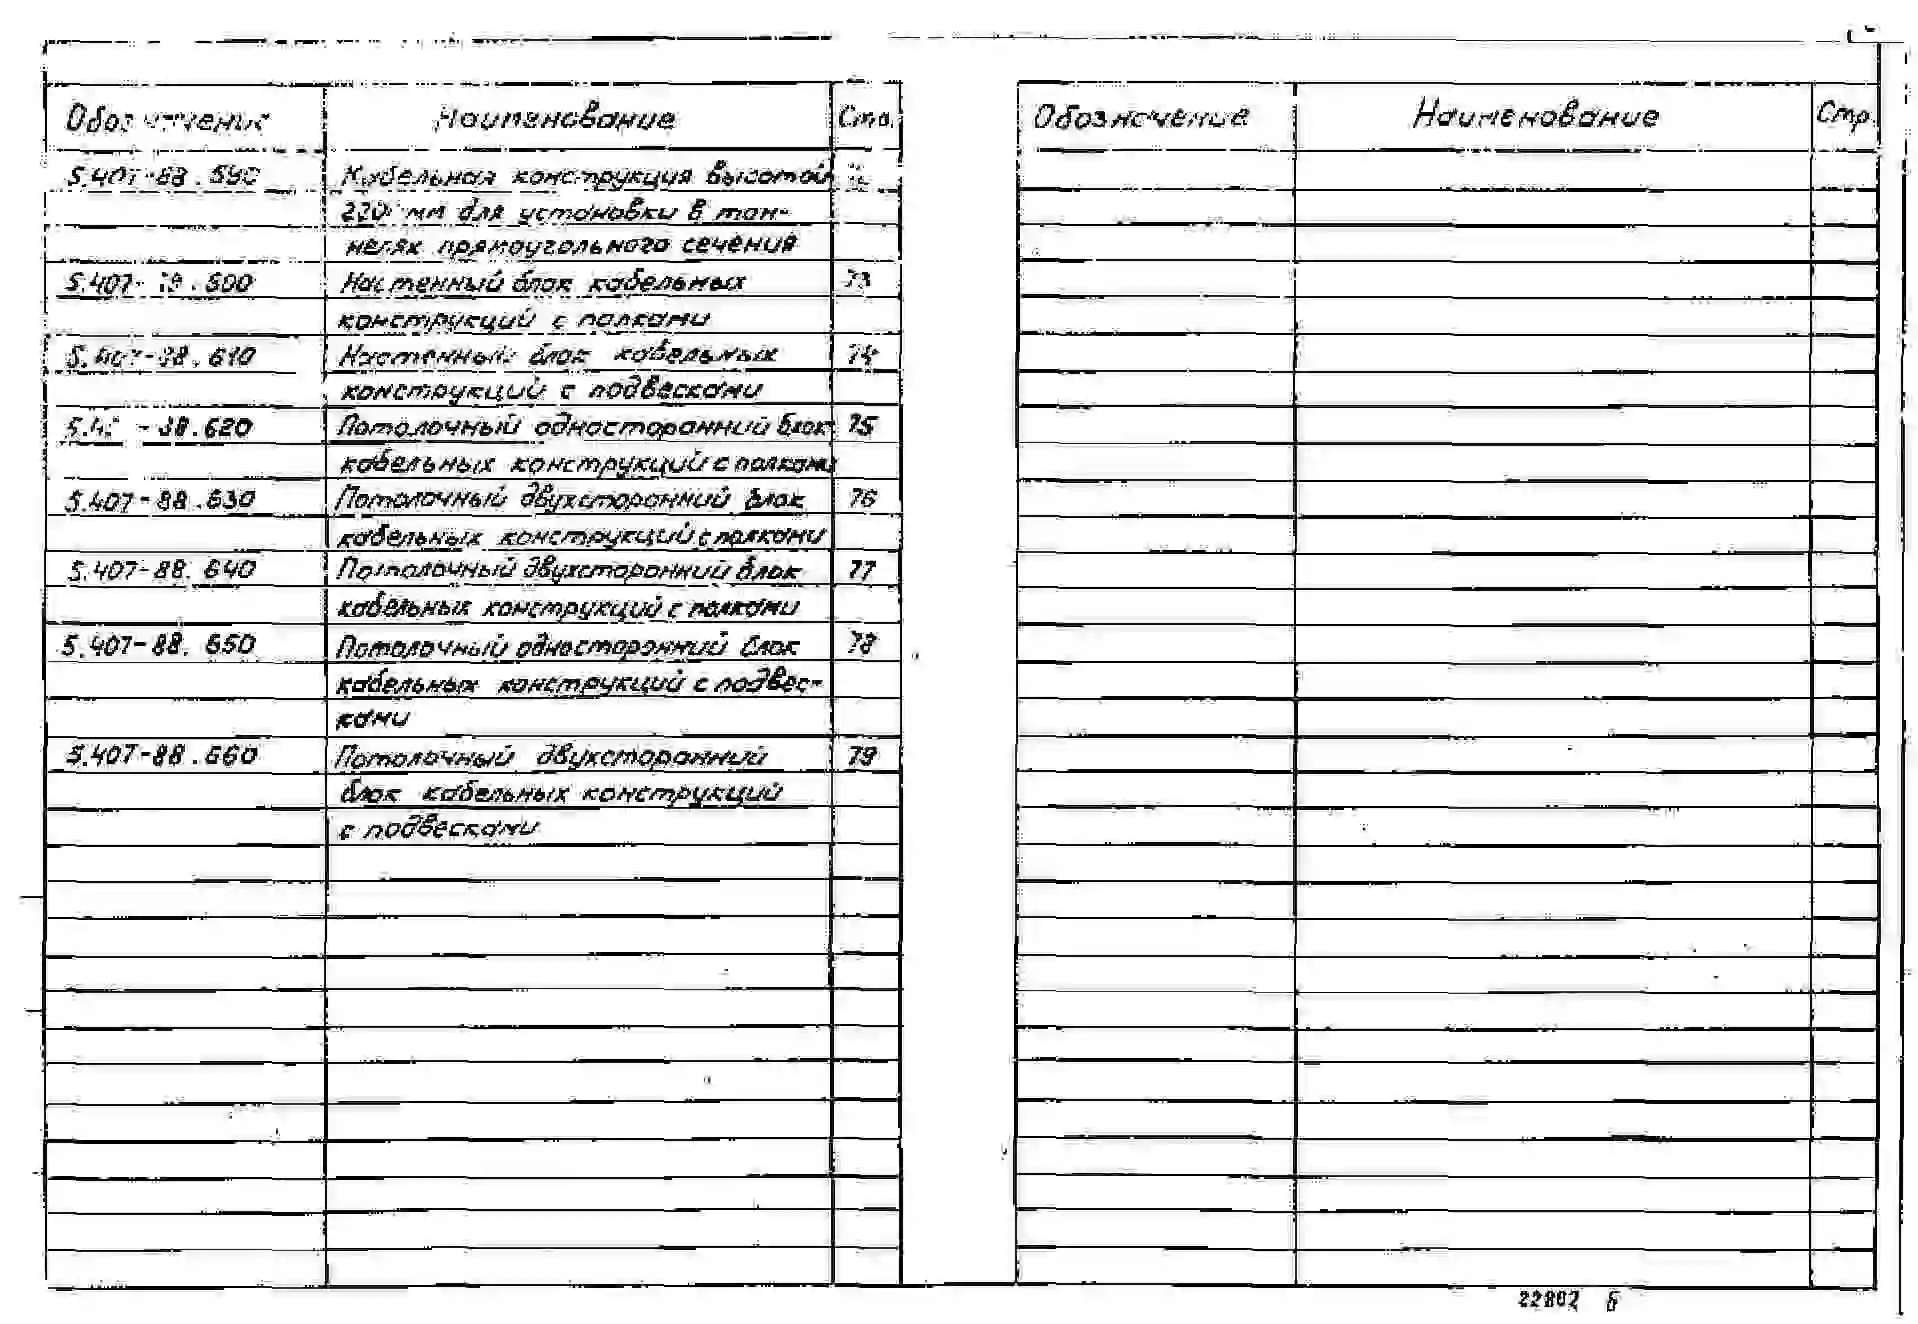 Обозначение Наименование Стр.
5.407-88.590 Кабельная конструкция высотой
мм для установки в тон-
нелях прямоугольного сечения
5.407-88.600 Настенный блок кабельных 73
конструкций с полками
5.407-88.610 Настенный блок кабельных 74
конструкций с подвесками
5.407-88.620 Потолочный односторонний блок 75
кабельных конструкций с полками
5.407-88.630 Потолочный двухсторонний блок 76
кабельных конструкций с полками
5.407-88.640 Потолочный двухсторонний блок 77
кабельных конструкций с полками
5.407-88.650 Потолочный односторонний блок 78
кабельных конструкций с подвес-
ками
5.407-88.660 Потолочный двухсторонний 79
блок кабельных конструкций
с подвесками
Обозначение Наименование Стр.
22802 6